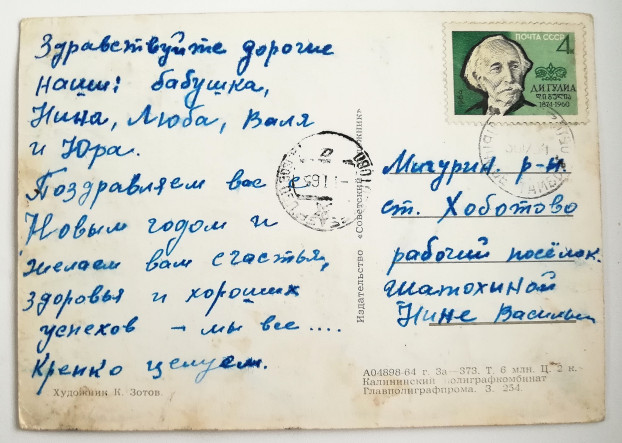 Здравствуйте дорогие
наши: бабушка,
Нина, Люба, Валя
и Юра.
Поздравляем вас с
Новым годом и
желаем вам счастья,
здоровья и хороших
успехов – мы все ....
Крепко целуем.
Художник К. Зотов
Издательство «Советский художник»
ПОЧТА СССР
4
Д.И.ГУЛИА
1874-1960
1964
Мичурин. р-н
ст. Хоботово
рабочий посёлок.
Шатохиной
Нине Васильев
А04898-64 г. За—373. Т. 6 млн. Ц. 2 к.
Калининский полиграфкомбинат
Главполиграфпрома. З. 254